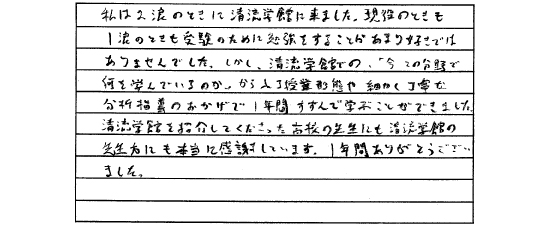 私は2浪のときに清流学館に来ました。現役のときも
1浪のときも受験のために勉強をすることがあまり好きでは
ありませんでした。しかし、清流学館での、「今どの分野で
何を学んでいるのか」から入る授業形態や細かく丁寧な
分析指導のおかげで1年間すすんで学ぶことができました。
清流学館を紹介してくださった高校の先生にも清流学館の
先生方にも本当に感謝しています。1年間ありがとうござい
ました。